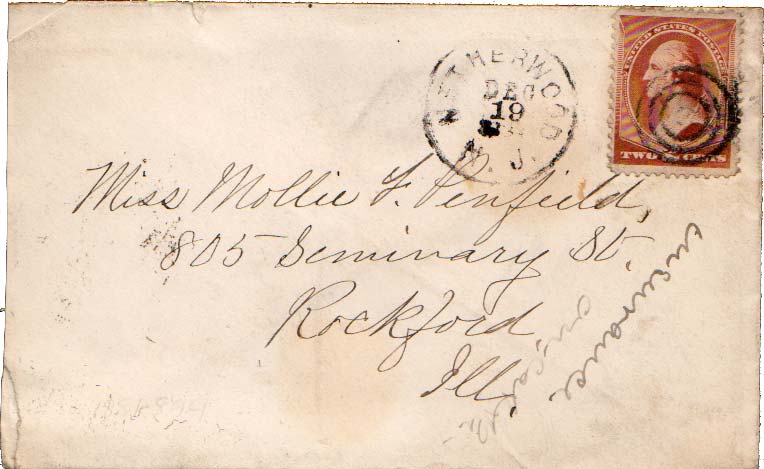 NETHERWOOD
DEC
19
N. J.
UNITED STATES POSTAGE
TWO CENTS
Miss Mollie F. Penfield,
805 Seminary St.
Rockford,
Ill.